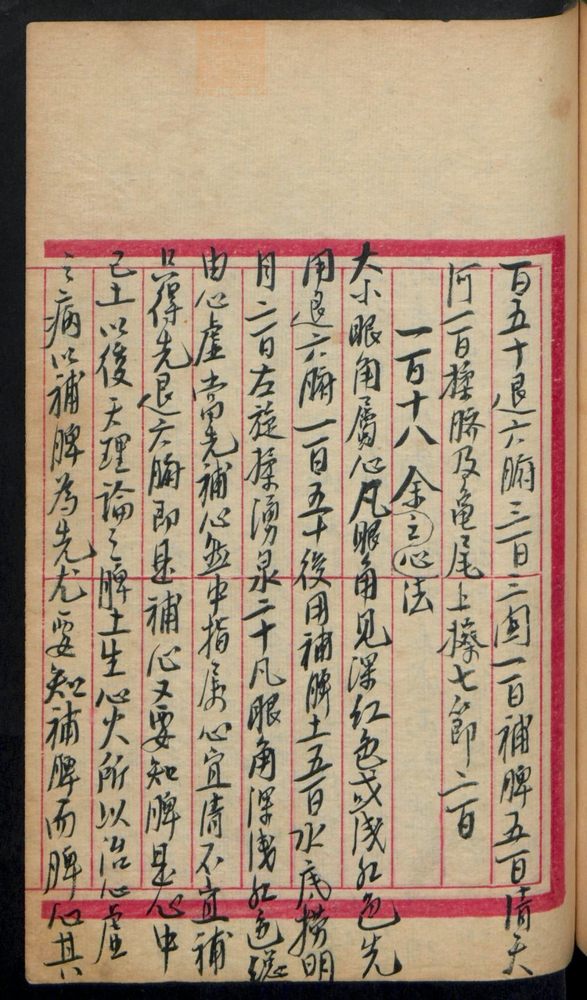 百五十退六腑三百三関一百補脾五百清天
河一百揉臍及龜尾上擦七節二百
一百十八 余之心法
大小眼角屬心凡眼角見深紅色或浅紅色先
用退六腑一百五十後用補脾土五百水底撈明
月二百左旋揉湧泉二十凡眼角深浅紅色總
由心虛當先補心然中指屬心宜清不宜補
只得先退六腑即是補心又要知脾是心中
己土以後天理論之脾土生心火所以治心虛
之病以補脾為先尤要知補脾而脾心其